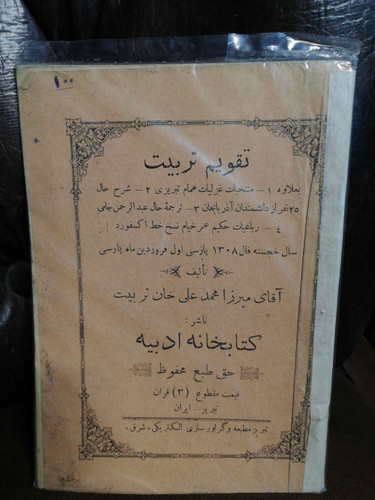 ۱۰۰
تقویم تربیت
بعلاوه ۱ - منتخبات غزلیات همام تبریزی ۲ - شرح حال
۲۵ نفر از دانشمندان آذربایجان ۳ - ترجمهٔ حال عبدالرحمن جامی
٤ - رباعیات حکیم عمر خیام نسخ خط اکسفورد
سال خجسته فال ۱۳۰۸ پارسی اول فروردین ماه پارسی
تألیف
آقای میرزا محمد علی خان تربیت
ناشر :
کتابخانه ادبیه
حق طبع محفوظ
قیمت مقطوع (۳) قران
تبریز - ایران
تبریز مطبعه و گراورسازی الکتریکی، شرق،